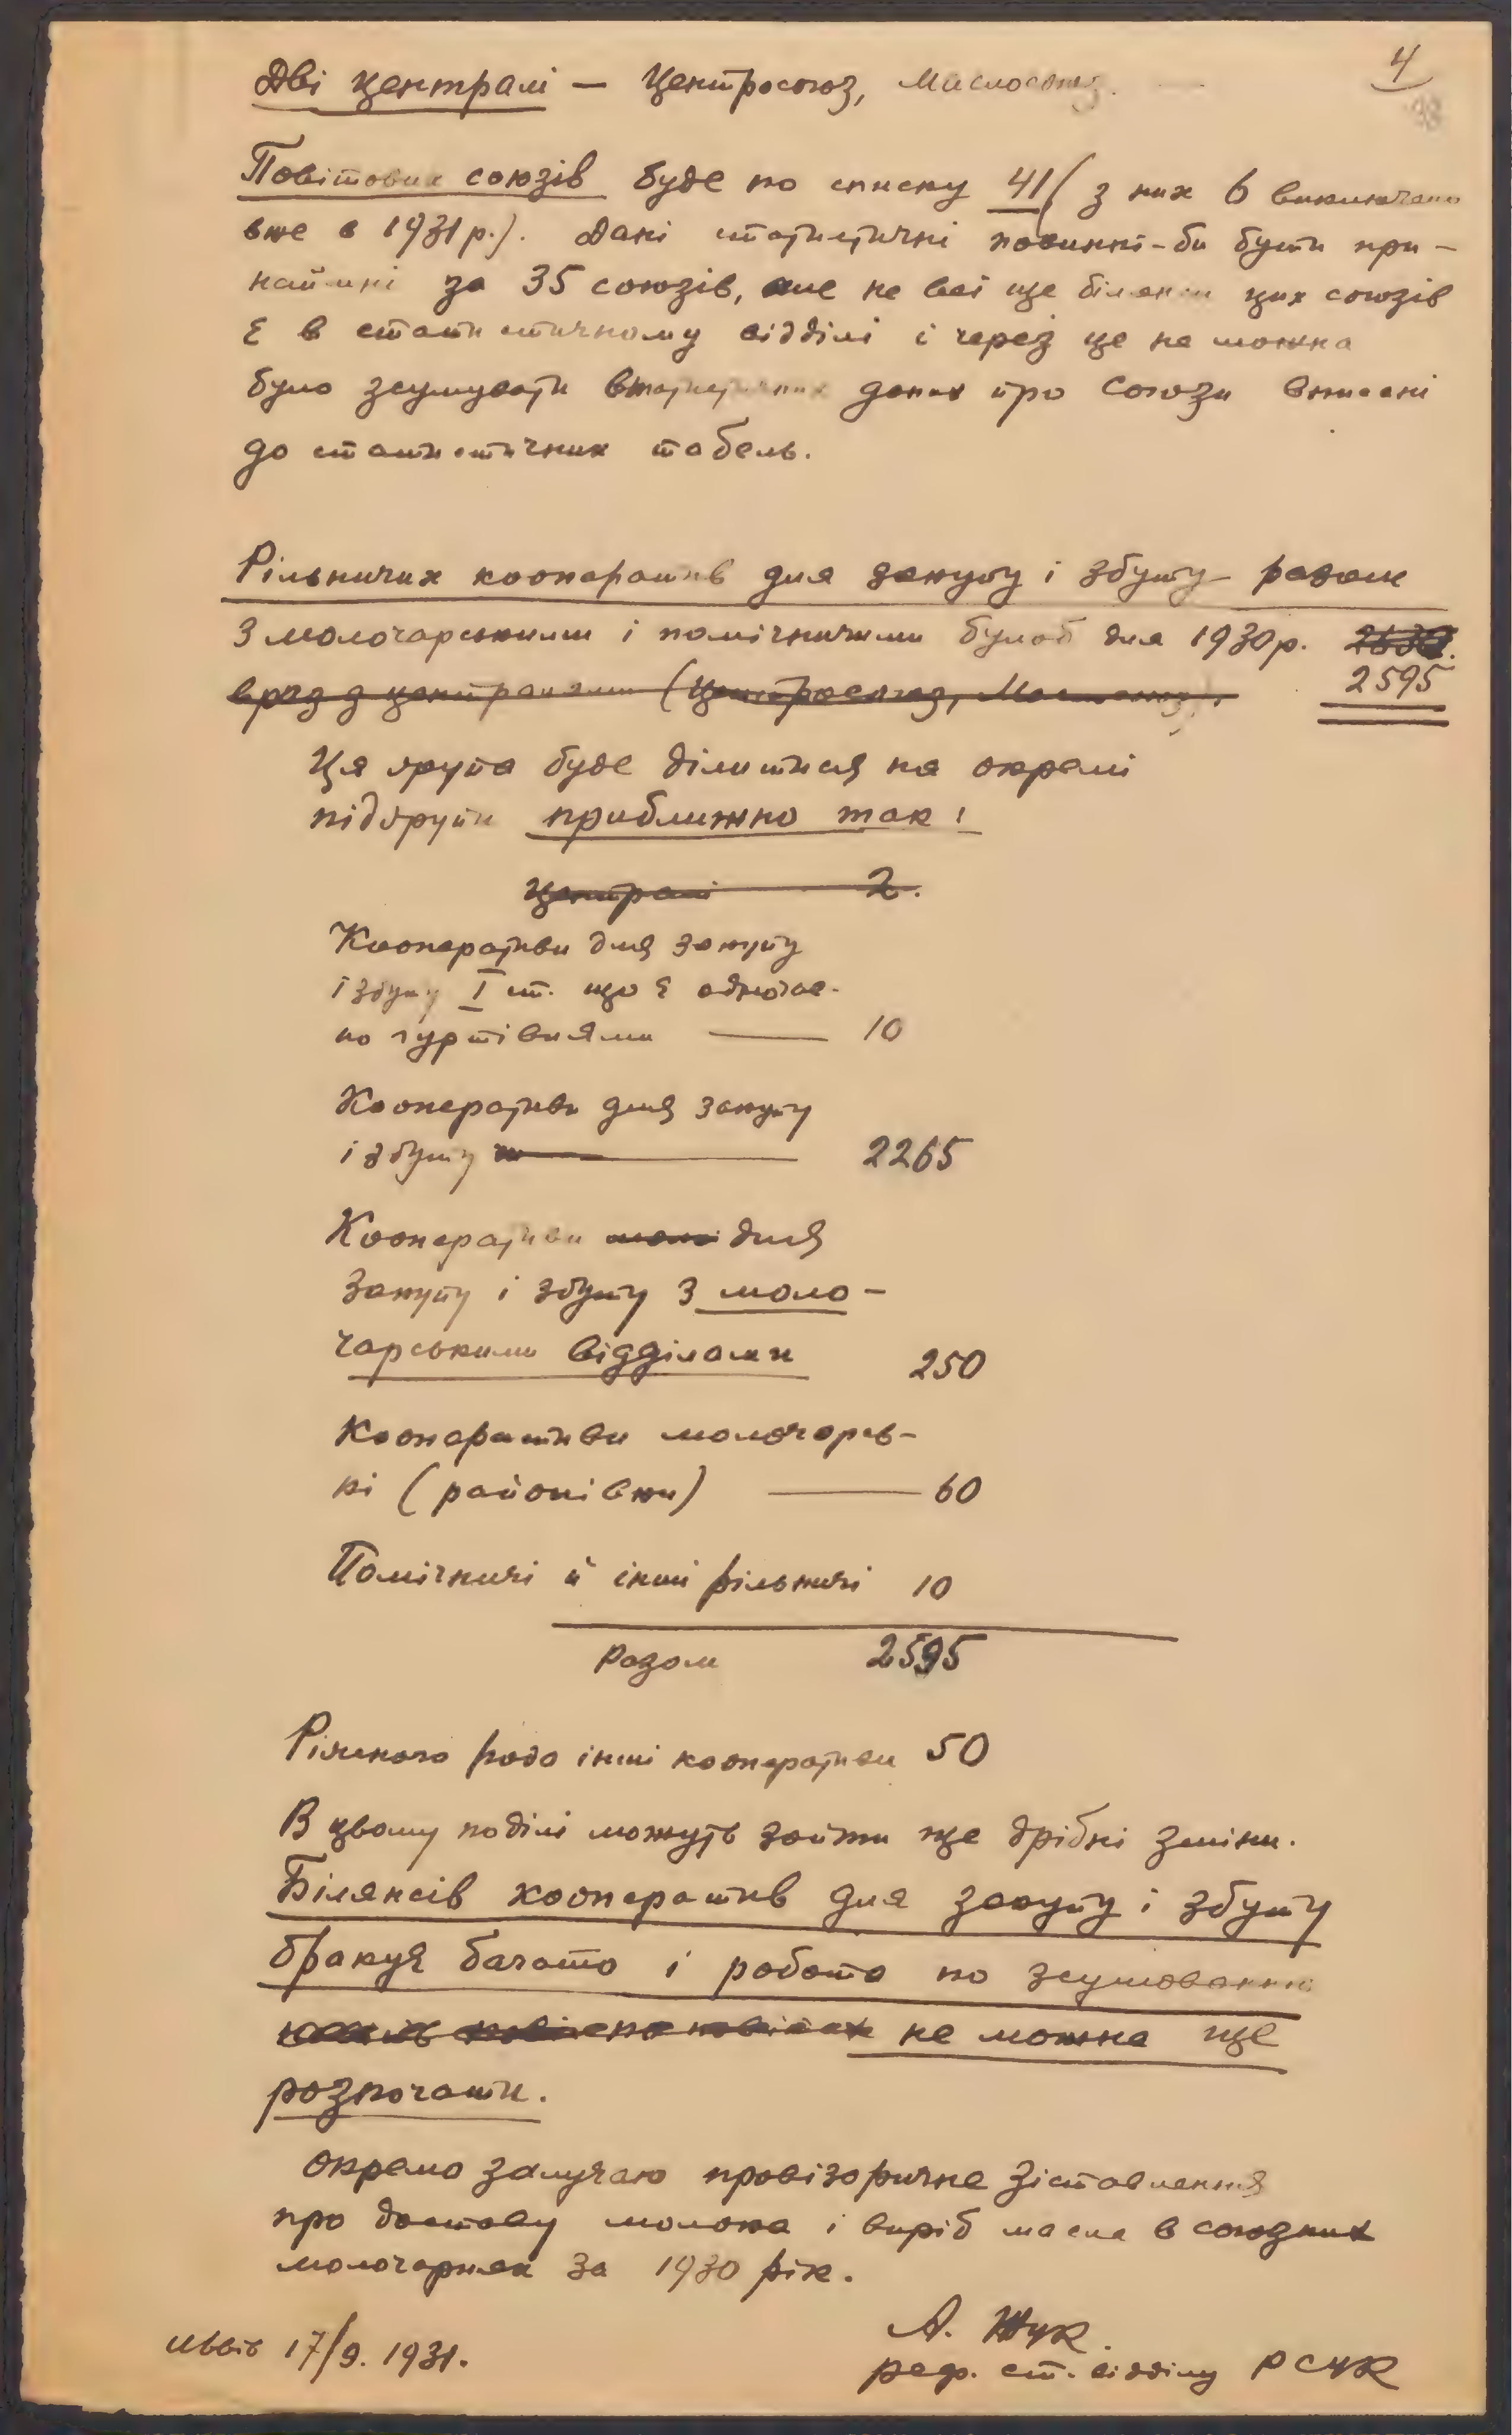 4
Дві централі — Центросоюз, Маслосоюз.
Повітових союзів буде по списку 41 (з них 6 виключено
вже в 1931 р.). Дані статистичні повинні-би бути при-
наймні за 35 союзів, але не всі ще білянси цих союзів
є в статистичному відділі і через це не можна
було зсумувати статистичних даних про союзи внесені
до статистичних табель.
Рільничих кооператив для закупу і збуту разом
з молочарськими і помічничими було б для 1930 р. 2630.
враз з централями (Центросоюз, Маслосоюз). 2595
Ця група буде ділитися на окремі
підгрупи приближно так:
Централі 2.
Кооперативи для закупу
і збуту I ст. що є одночас-
но гуртівнями — 10
Кооперативи для закупу
і збуту — 2265
Кооперативи моло для
закупу і збуту з моло-
чарськими відділами 250
Кооперативи молочарсь-
кі (районівки) — 60
Помічничі й інші рільничі 10
Разом 2595
Ріжного рода інші кооперативи 50
В цьому поділі можуть зайти ще дрібні зміни.
Білянсів кооператив для закупу і збуту
бракує багато і роботи по зсумованню
не можна ще
розпочати.
Окремо залучаю провізоричне зіставлення
про доставу молока і виріб масла в союзних
молочарнях за 1930 рік.
Львів 17/9. 1931.
А. Жук.
реф. ст. відділу РСУК